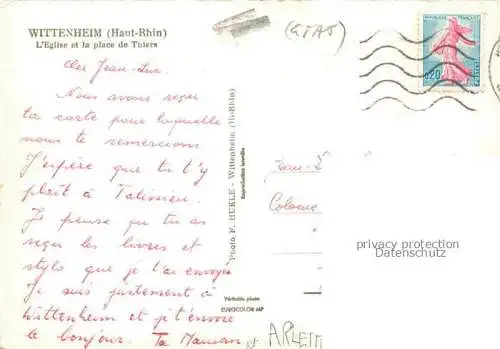 WITTENHEIM (Haut-Rhin)
L'Eglise et la place de Thiers
(GTAS)
REPUBLIQUE FRANÇAISE
0,20
POSTES
Cher Jean-Luc.
Nous avons reçu
ta carte pour laquelle
nous te remercions.
J'espère que tu t'y
plait à
Je pense que tu as
reçu les livres et
stylo que je t'ai envoyé
Je suis justement à
Wittenheim et je t'envoie
le bonjour. Ta Maman
et ARLETT
Photo F. HUKLE - Wittenheim (Ht-Rhin)
Reproduction interdite
Véritable photo
EUROCOLOR MP
Jean-L
Colonie
privacy protection
Datenschutz